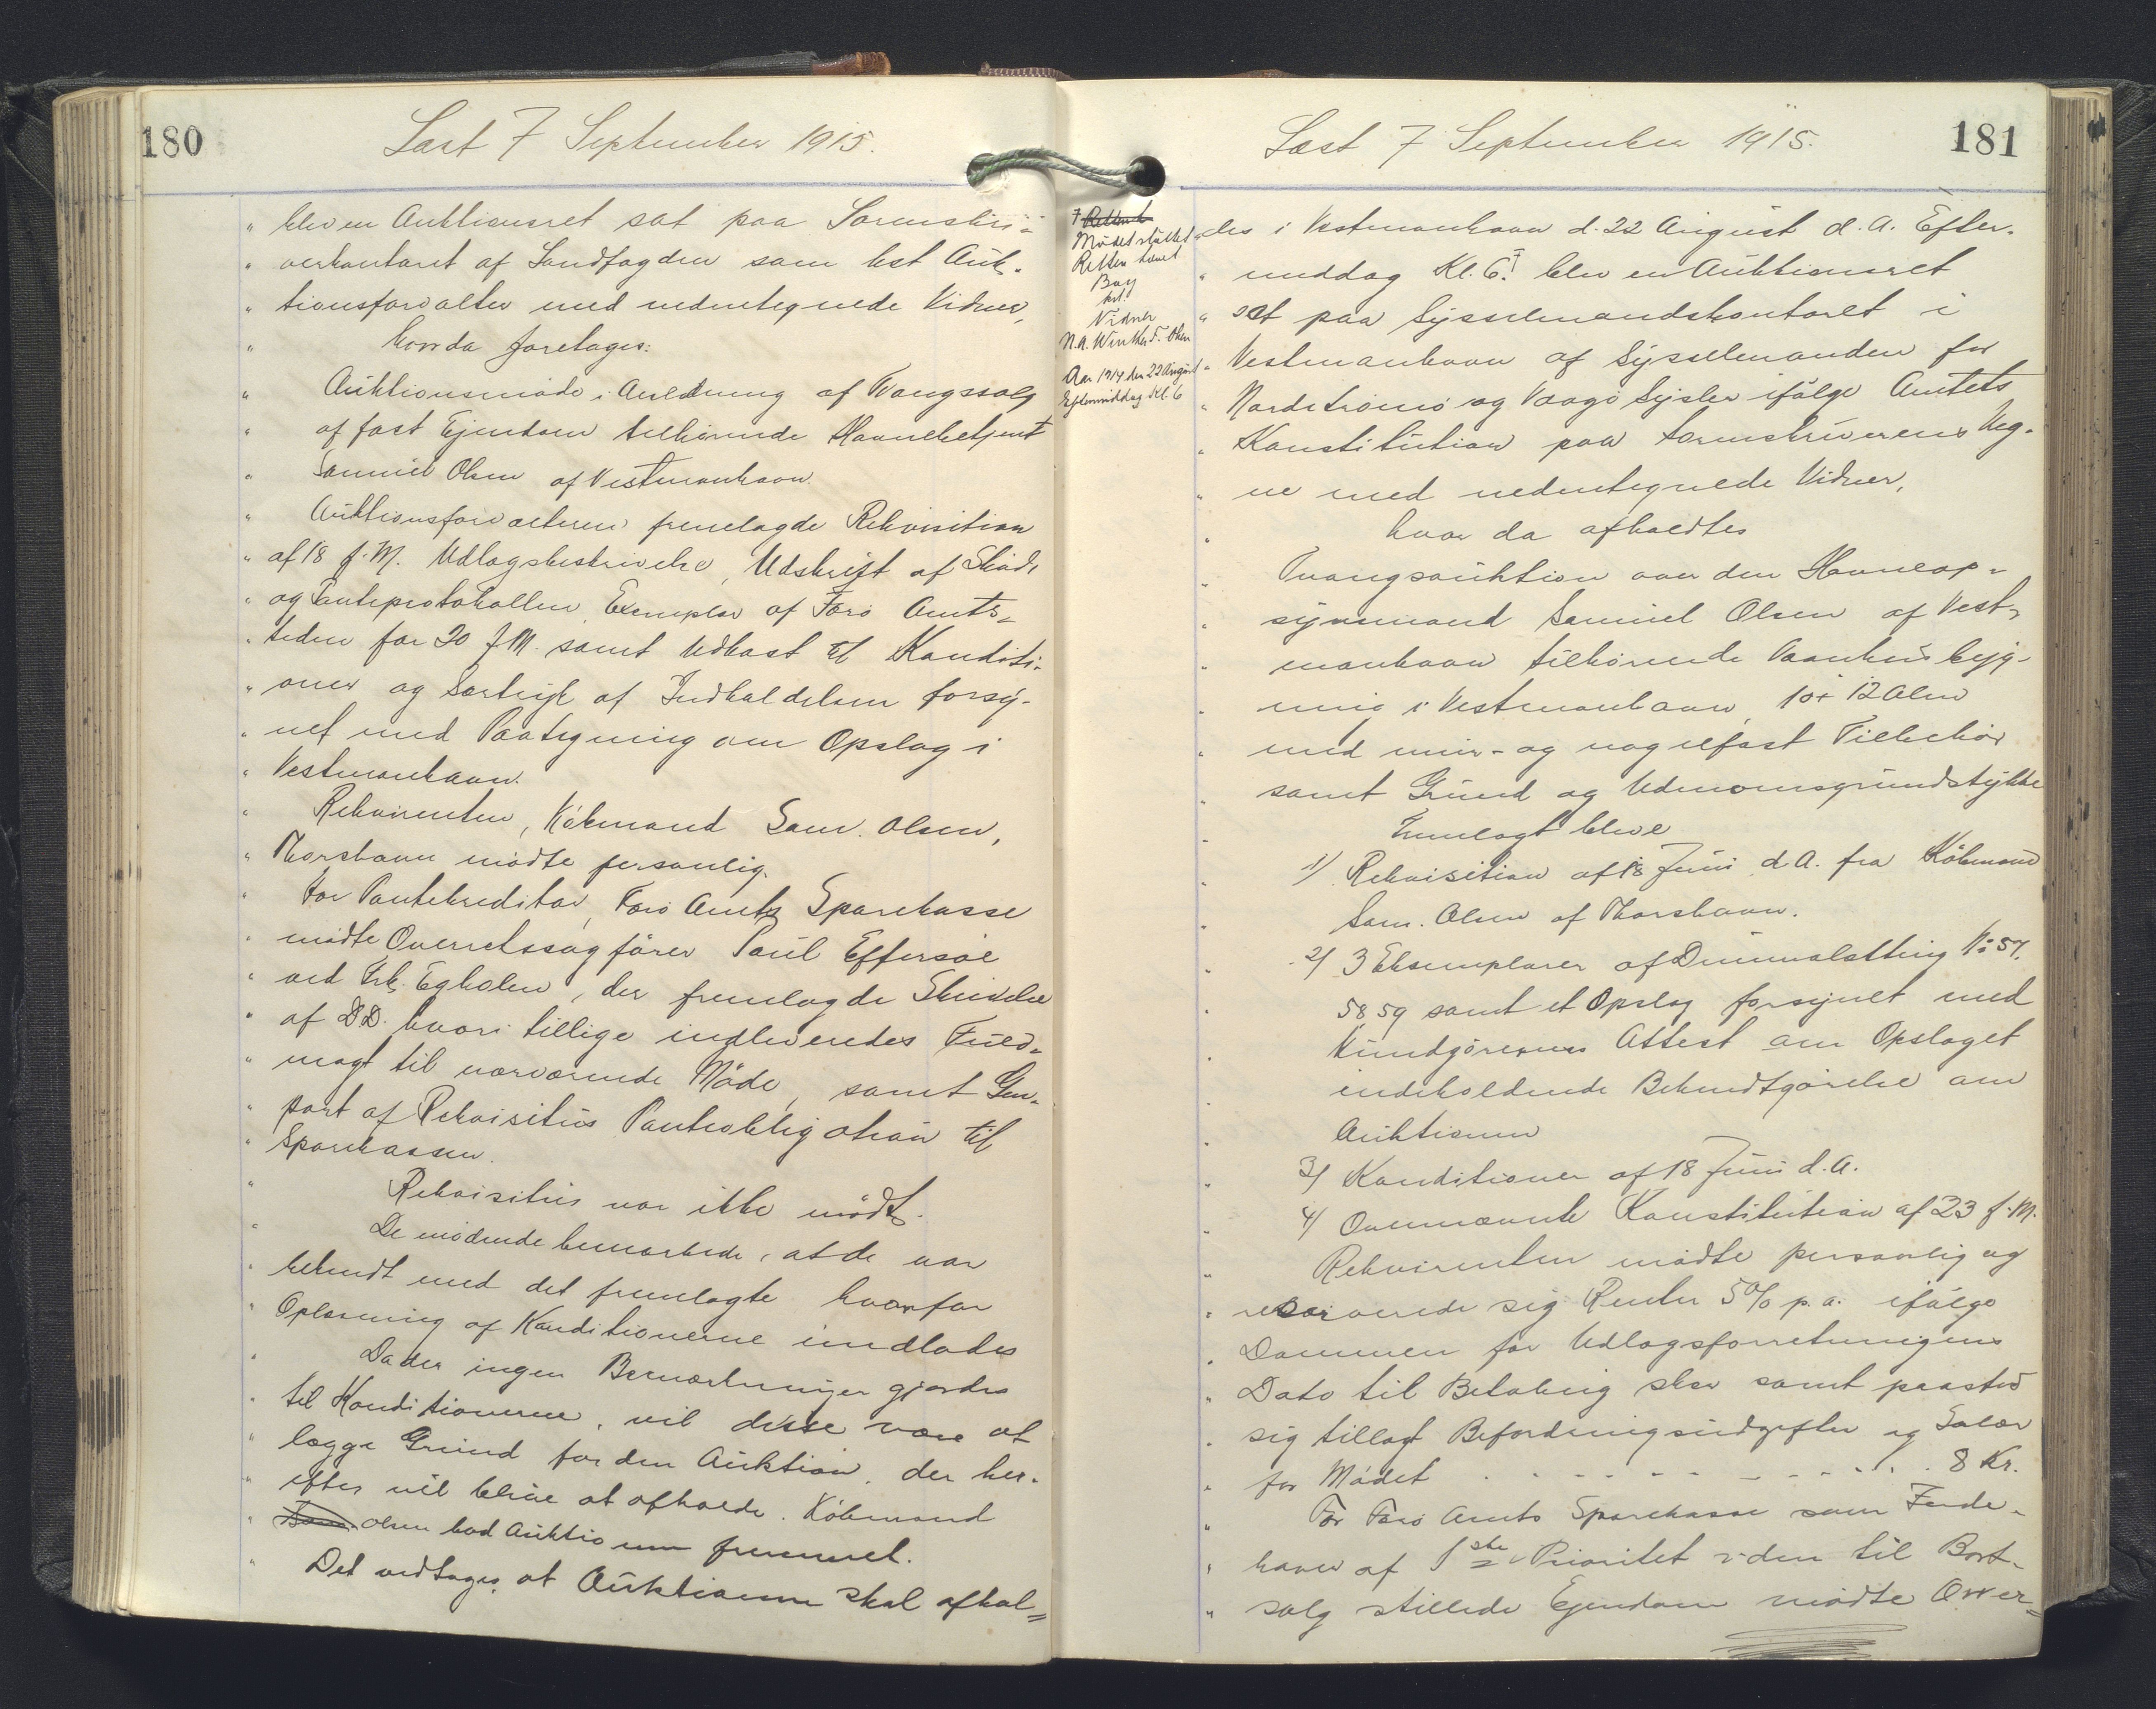 180
Læst 7 September 1915.
" blev en Auktionsret sat paa Sorenskri-
" verkontoret af Landfogden som kst Auk-
" tionsforvalter med nedentegnede Vidner,
" hvorda foretoges:
" Auktionsmöde i Anledning af Tvangssalg
" af fast Ejendom tilhörende Havnebetjent
" Samuel Olsen af Vestmanhavn.
" Auktionsforvalteren fremlagde Rekvisition
" af 18 f.M. Udlægsbeskrivelse, Udskrift af Sköde
" og Panteprotokollen, Exemplar af Færö Amts-
" tidende for 20 f.M. samt Udkast til Konditi-
" oner og Særtryk af Indkaldelsen forsy-
" net med Paategning om Opslag i
" Vestmanhavn.
" Rekvirenten, Köbmand Sam. Olsen,
" Thorshavn mödte personlig.
" For Pantekreditor, Færö Amts Sparekasse
" mödte Overretssagförer Poul Effersöe
" ved Frk. Egholm, der fremlagde Skrivelse
" af D.D. hvori tillige indleveredes Fuld-
" magt til nærværende Möde, samt Gen-
" part af Rekvisitus Panteobligation til
" Sparekassen.
" Rekvisitus var ikke mödt.
" De mödende bemærkede, at de var
" bekendt med det fremlagte hvorfor
" Oplæsning af Konditionerne undlodes
" Da der ingen Bemærkninger gjordes
" til Konditionerne, vil disse være at
" lægge Grund for den Auktion, der her-
" efter vil blive at afholde. Köbmand
" Olsen bad Auktionen fremmet.
" Det vedtoges, at Auktionen skal afhol=
Læst 7 September 1915.
181
Mödet sluttet
Retten hævet
Bay
kst.
Vidner
N.A. Winther J. Olsen
Aar 1914 den 22 August
Eftermiddag Kl. 6
des i Vestmanhavn d. 22 August d.A. Efter-
" middag Kl. 6. blev en Auktionsret
" sat paa Sysselmandskontoret i
" Vestmanhavn af Sysselmanden for
" Nordströmö og Vaagö Sysler ifölge Amtets
" Konstitution paa Sorenskriverens Veg-
" ne med nedentegnede Vidner,
" hvor da afholdtes
" Tvangsauktion over den Havneop-
" synsmand Samuel Olsen af Vest-
" manhavn tilhörende Vaanhusbyg-
" ning i Vestmanhavn, 10 x 12 Alen
" med mur- og nagelfast Tilbehör
" samt Grund og Udenomsgrundstykke
" Fremlagt blev
" 1) Rekvisition af 18 Juni d.A. fra Köbmand
" Sam. Olsen af Thorshavn.
" 2) 3 Eksemplarer af Dimmalætting No 57,
" 58 59 samt et Opslag forsynet med
" Kundgörerens Attest om Opslaget
" indeholdende Bekendtgörelse om
" Auktionen
" 3) Konditioner af 18 Juni d.A.
" 4) Ovennævnte Konstitution af 23 f.M.
" Rekvirenten mödte personlig og
" reserverede sig Renter 5% p.a. ifölge
" Dommen for Udlægsforretningens
" Dato til Betaling sker samt paastod
" sig tillagt Befordringsudgifter og Salær
" for Mödet . - - - - - - - - - . . 8 Kr.
" For Færö Amts Sparekasse som Inde-
" haver af 1ste Prioritet i den til Bort-
" salg stillede Ejendom mödte Over=